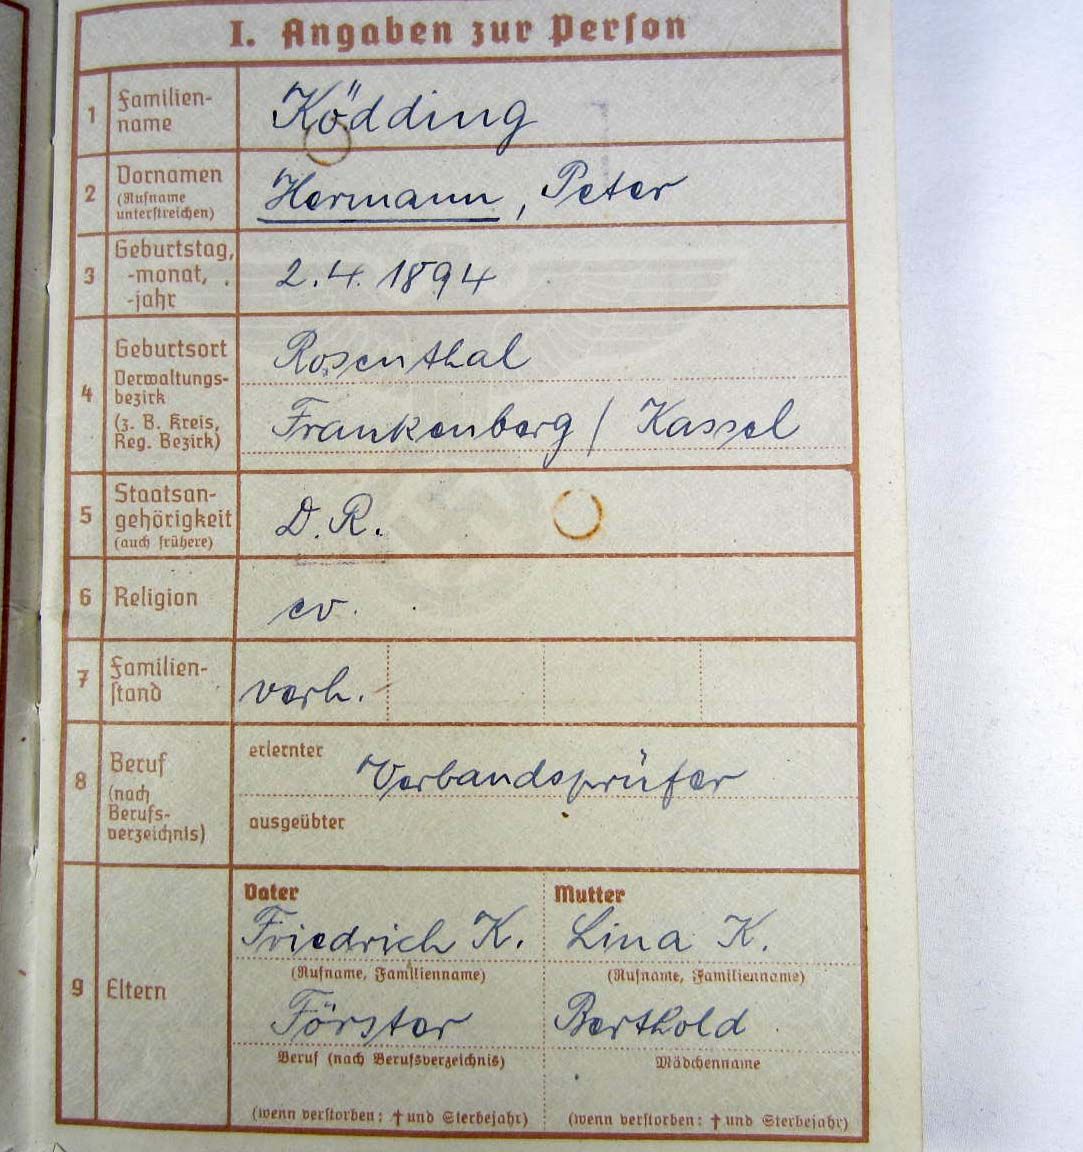 I. Angaben zur Person
1 Familien-
name
Ködding
2 Vornamen
(Rufname
unterstreichen)
Hermann, Peter
3 Geburtstag,
-monat,
-jahr
2.4.1894
4 Geburtsort
Rosenthal
Verwaltungs-
bezirk
(z. B. Kreis,
Reg. Bezirk)
Frankenberg / Kassel
5 Staatsan-
gehörigkeit
(auch frühere)
D.R.
6 Religion
ev.
7 Familien-
stand
verh.
8 Beruf
(nach
Berufs-
verzeichnis)
erlernter
Verbandsprüfer
ausgeübter
9 Eltern
Vater
Friedrich K.
(Rufname, Familienname)
Förster
Beruf (nach Berufsverzeichnis)
(wenn verstorben: † und Sterbejahr)
Mutter
Lina K.
(Rufname, Familienname)
Berthold
Mädchenname
(wenn verstorben: † und Sterbejahr)